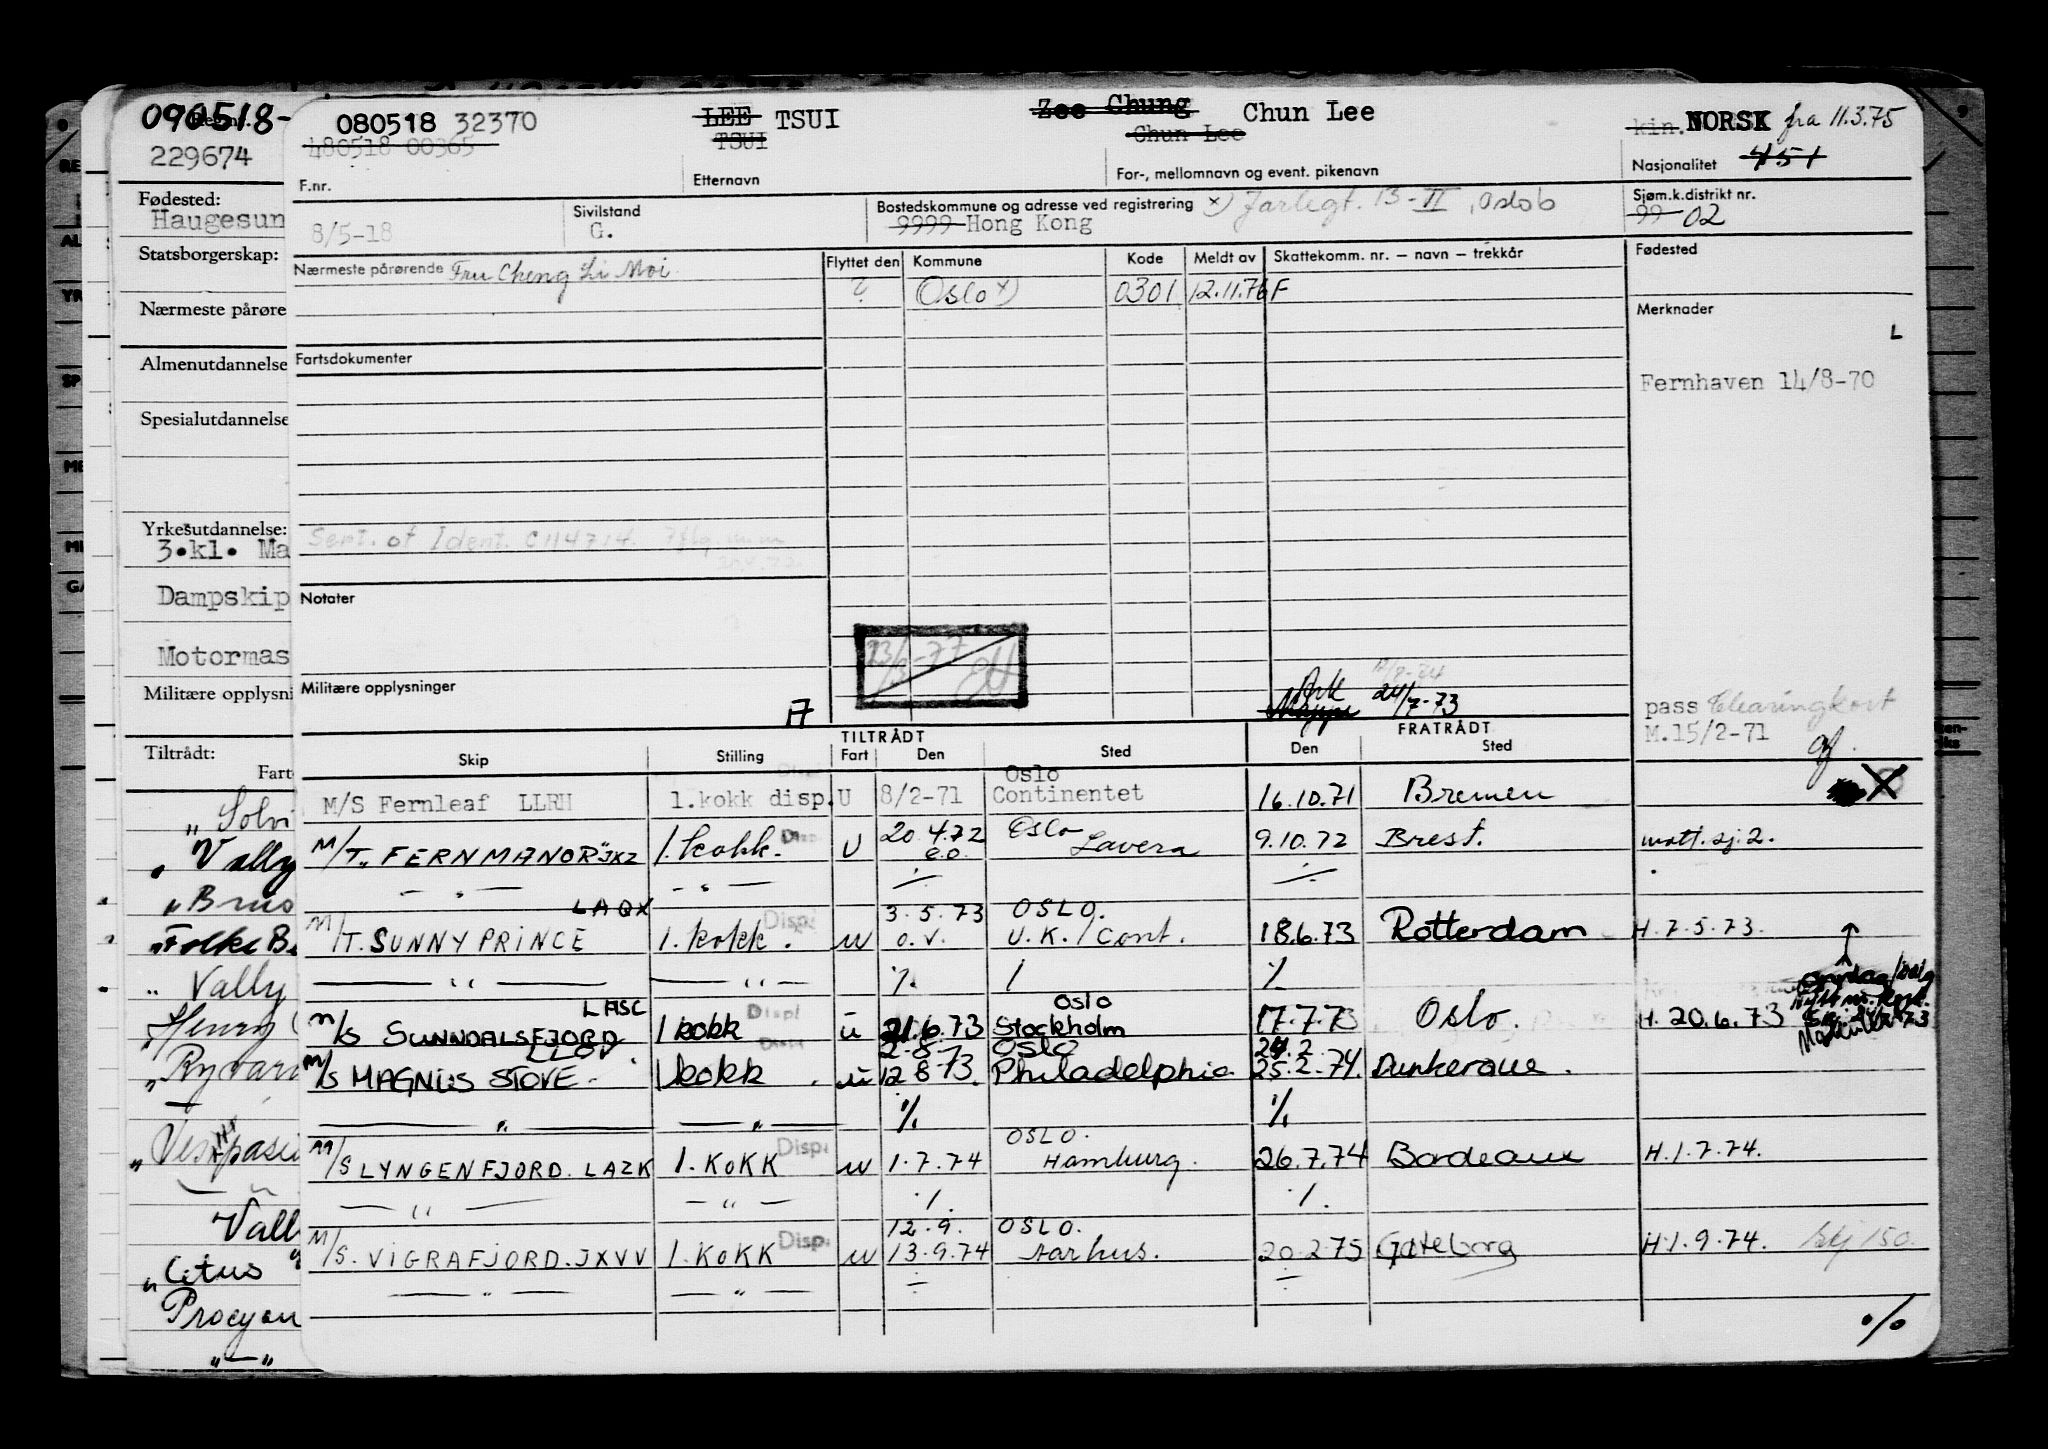 090518-
Reg.nr.
229674
Fødested:
Haugesun
Statsborgerskap:
Nærmeste pårøre
Almenutdannelse
Spesialutdannelse
Yrkesutdannelse:
3.kl. Ma
Dampskip
Motormas
Militære opplysni
Tiltrådt:
Farts
" Solvi
" Vally
" Brus
" Folke B
" Vally
Henry
" Ryvar
" Vespasi
Vall
" Citus "
Procyon
" — "
080518 32370
480518 00365
F.nr.
LEE TSUI
TSUI
Etternavn
Zee Chung Chun Lee
Chun Lee
For-, mellomnavn og event. pikenavn
kin. NORSK fra 11.3.75
Nasjonalitet 451
8/5-18
Sivilstand
G.
Bostedskommune og adresse ved registrering x) Jarlegt. 13-II, Oslo 6
9999 Hong Kong
Sjøm.k.distrikt nr.
99 02
Nærmeste pårørende Fru Cheng Li Moi
Flyttet den Kommune Kode Meldt av Skattekomm. nr. – navn – trekkår
? Oslo x) 0301 12.11.76 F
Fødested
Merknader
L
Fartsdokumenter
Fernhaven 14/8-70
Sert. of Ident. C 114714.
Notater
23/3-77
Militære opplysninger
A
Ark 17/9-74
Mappe 24/7-73
pass Clearingkort
M.15/2-71
TILTRÅDT FRATRÅDT
Skip Stilling Fart Den Sted Den Sted
M/S Fernleaf LLRH 1.kokk disp. U 8/2-71 Oslo Continentet 16.10.71 Bremen
M/T "FERNMANOR" JXZ 1. kokk. Disp U 20.4.72 e.o. Oslo Lavera 9.10.72 Brest. mott. sj. 2.
— " — — " — ÷ ÷
LAQX
M/T. SUNNY PRINCE 1. kokk. Disp U 3.5.73 o.v. OSLO. U.K./Cont. 18.6.73 Rotterdam H.7.5.73.
— " — — " — % / %
LASC
M/S SUNNDALSFJORD 1 kokk Displ u 21.6.73 Oslo Stockholm 17.7.73 Oslo. H. 20.6.73
M/S MAGNUS STOVE 1 kokk Displ u 2.8.73 12.8.73. Oslo Philadelphia 24.2 25.2.74. Dunkerque.
— " — — " — % %
M/S LYNGENFJORD. LAZK 1. KOKK Displ u 1.7.74 OSLO. Hamburg. 26.7.74 Bordeaux H.1.7.74.
— " — — " — % %
M/S. VIGRAFJORD. JXVV 1. KOKK Displ u 12.9. 13.9.74 OSLO. Aarhus. 20.2.75 Gøteborg H.1.9.74. Sky 150.
— " — — " — ÷ ÷
%